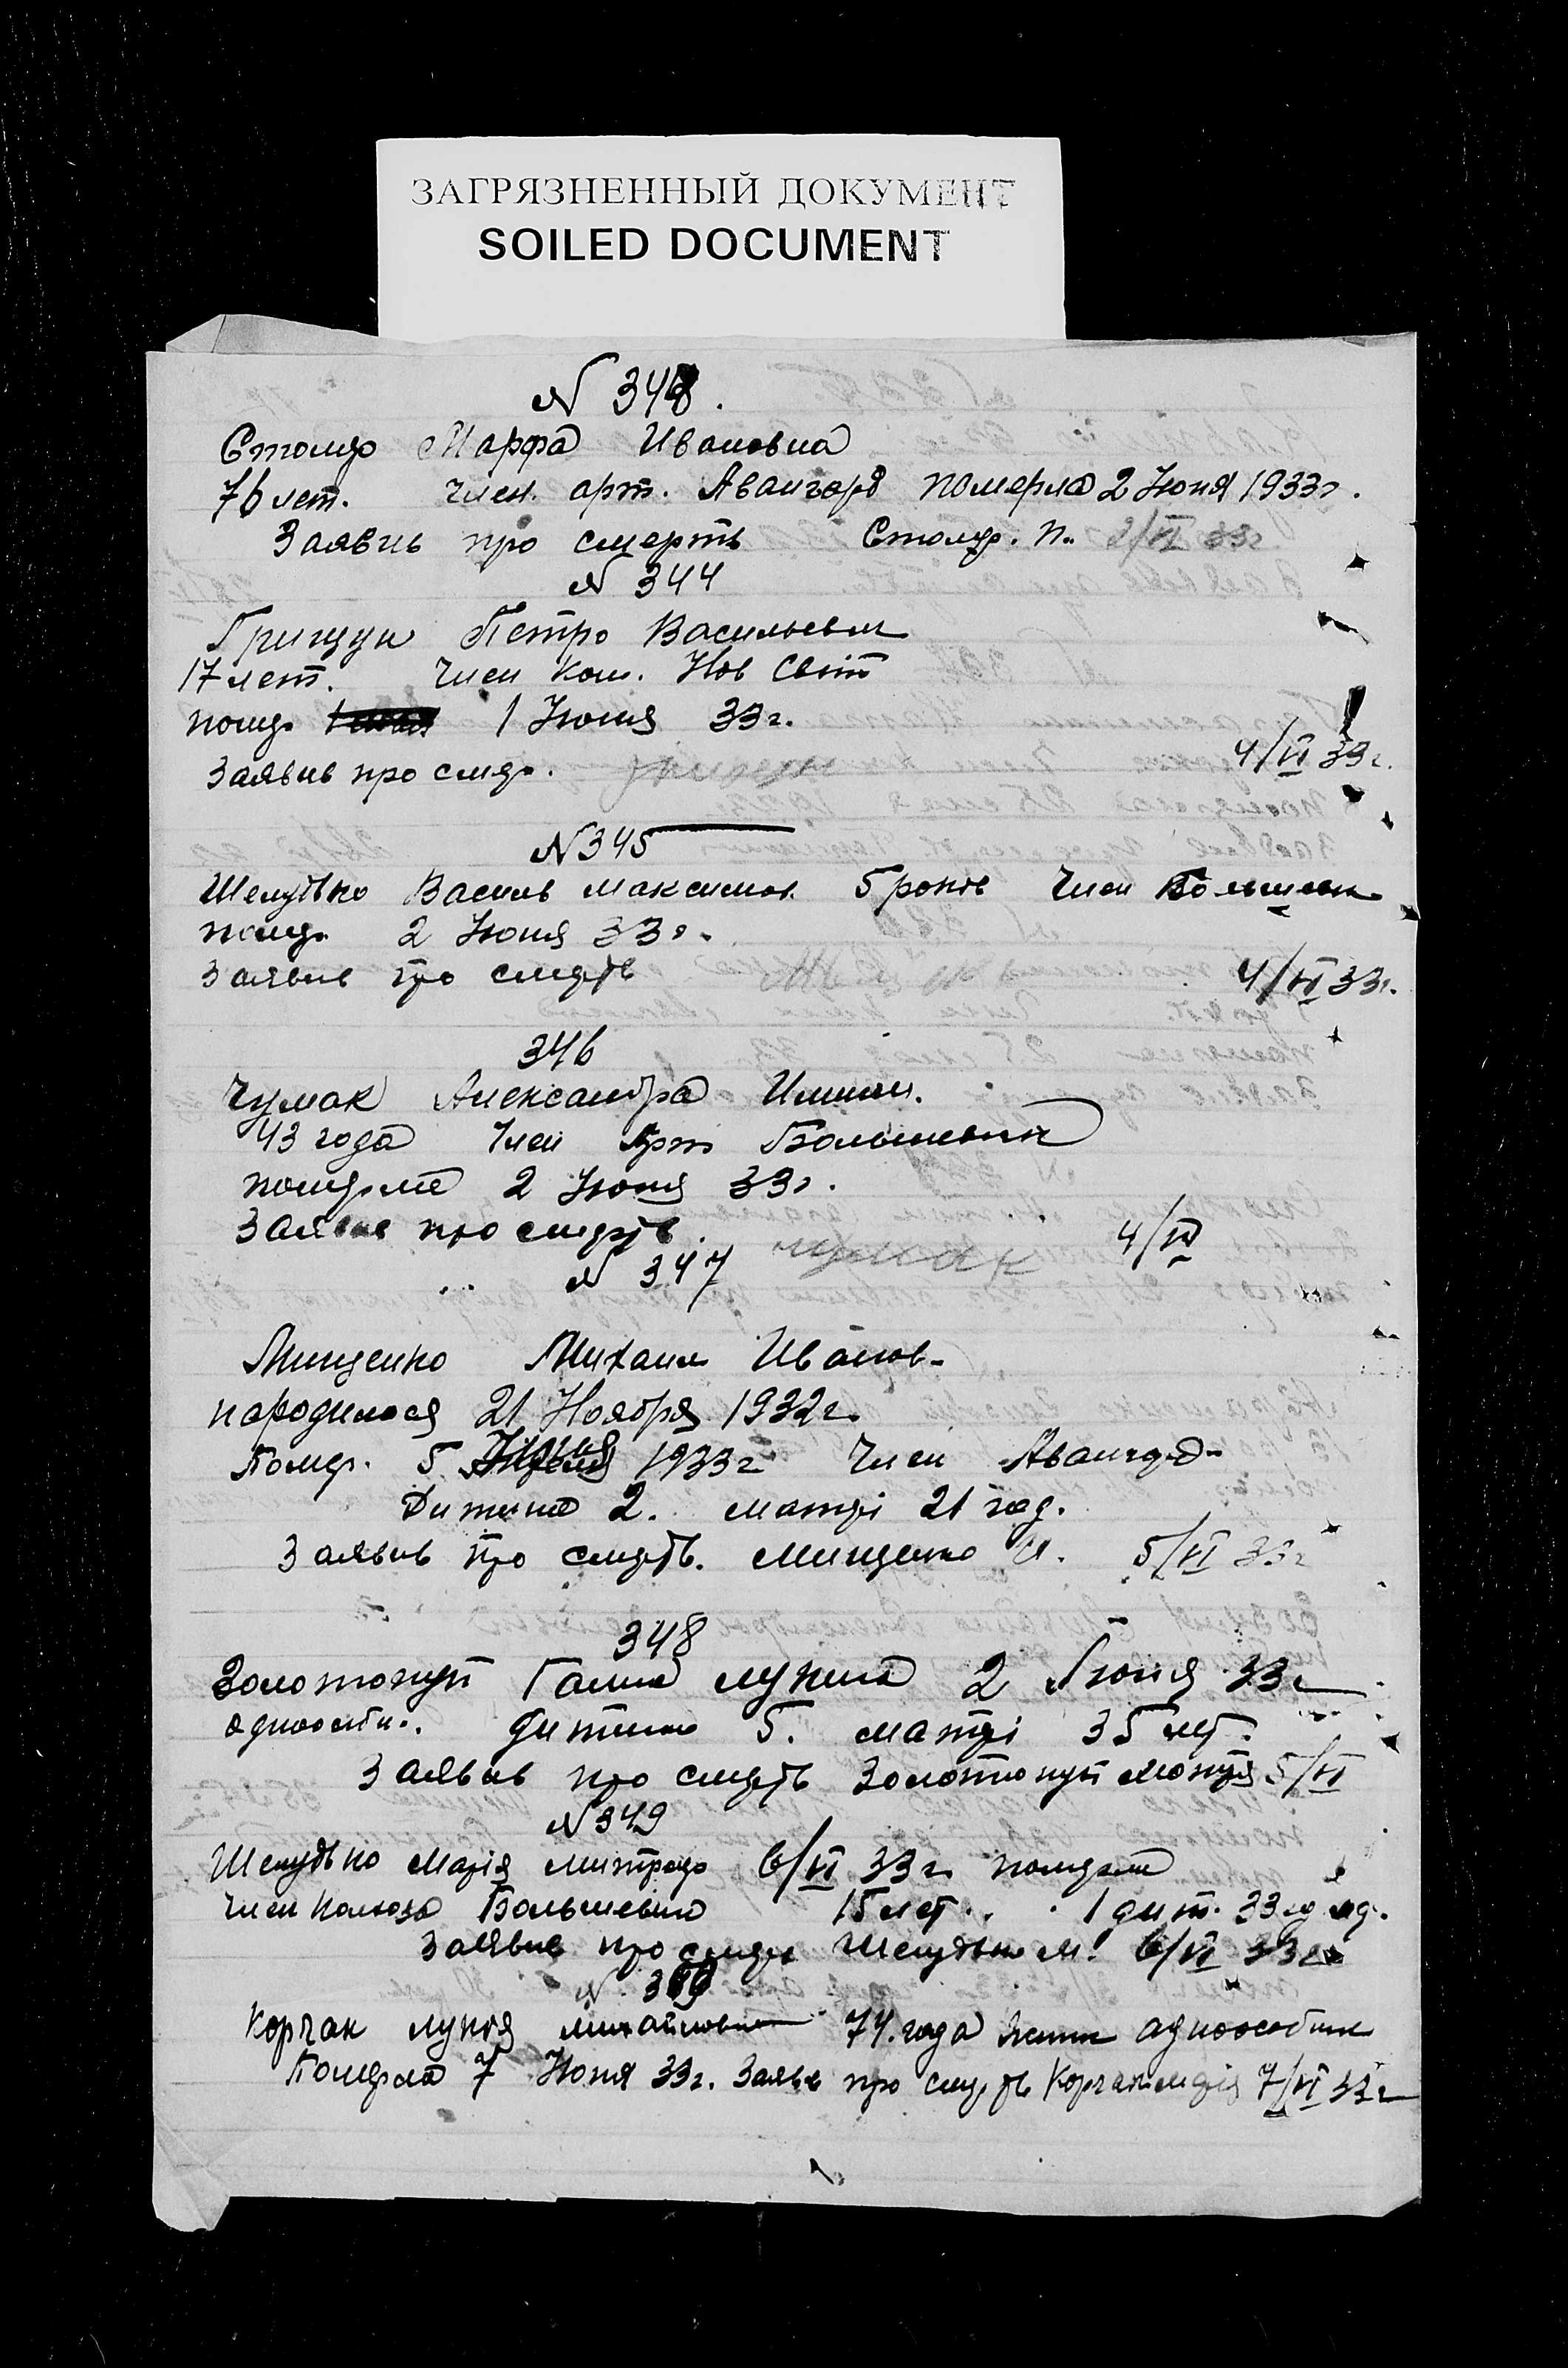 ЗАГРЯЗНЕННЫЙ ДОКУМЕНТ
SOILED DOCUMENT
N 343.
Столяр Марфа Ивановна
76 лет. Член. арт. Авангард померла 2 Июня 1933г.
Заявив про смерть Столяр. П. 2/VI 33г
N 344
Грищун Петро Васильевич
17 лет. Член Ком. Нов Світ
помер 1 Июня 33г.
Заявив про смер. 4/VI 33г.
N 345
Шелудько Василь Максимов. 5 років Член Большевик
помер 2 Июня 33г.
Заявив про смерть 4/VI 33г.
346
Чумак Александра
43 года Член Арт Большевик
померла 2 Июня 33г.
Заявив про смерть чумак 4/VI
N 347
Мищенко Михаил Иванов.
народился 21 Ноября 1932г.
Помер. 5 Июня 1933г Член Авангард
Дитина 2. матері 21 год.
Заявив про смерть. Мищенко И. 5/VI 33г
348
Золотопуп Галина 2 Июня 33г
одноосібн. дитина 5. матері 35 лет.
Заявив про смерть Золотопуп 5/VI
N 349
Шелудько Марія 6/VI 33г померла
Член Колхоза Большевик 15 лет. 1 дит. 33
Заявив про смерть Шелудько М. 6/VI 33г
N 350
Корчак Лукія Михайловна 74. года
Померла 7 Июня 33г. Заявив про смерть Корчак 7/VI 33г